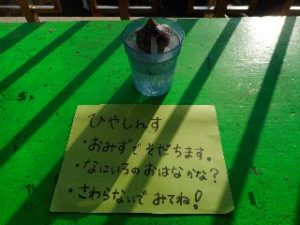 ひやしんす
・おみずでそだちます。
・なにいろのおはなかな?
・さわらないでみてね!